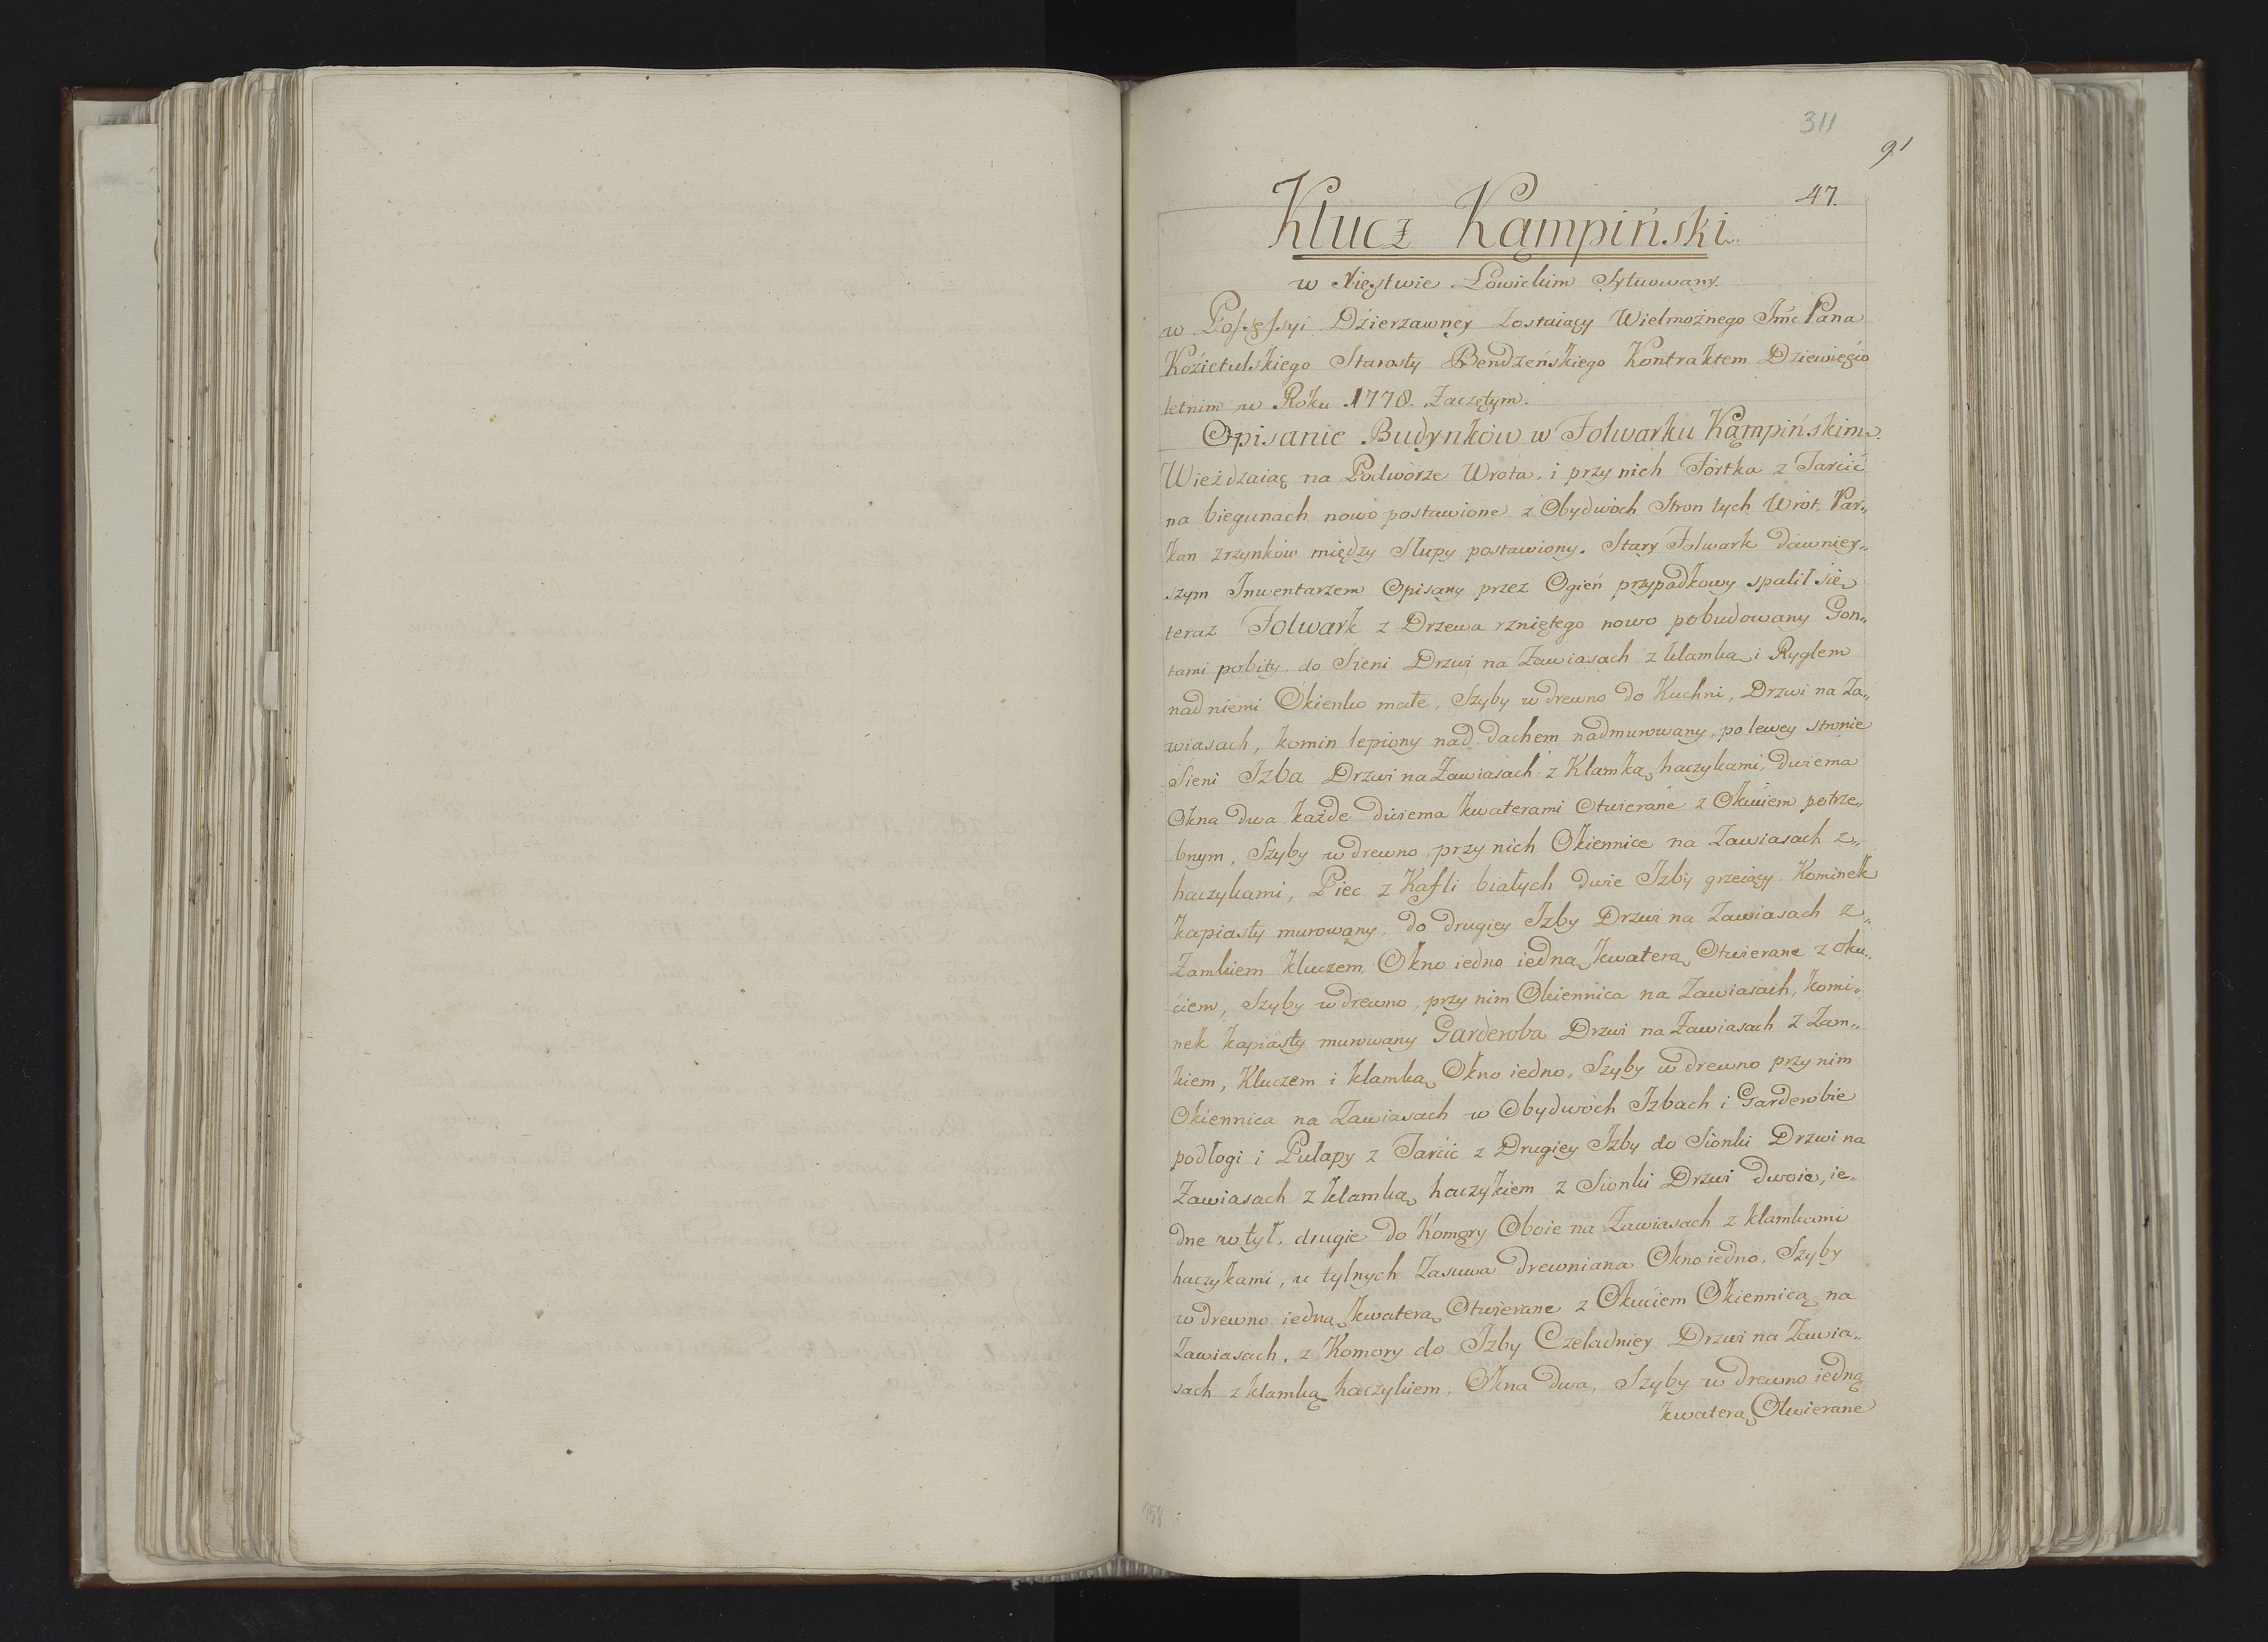 311
91
47.
Klucz Kąmpiński
w Xięstwie Łowickim Sytuowany.
w Possessyi Dzierzawney Zostaiący Wielmożnego Jmć Pana
Koźietulskiego Starosty Bendzeńskiego Kontraktem Dziewięćio
letnim w Roku 1778. Zaczętym.
Opisanie Budynków w Folwarku Kąmpińskim.
Wieżdzaiąc na Podworze Wrota, i przy nich Fórtka z Tarcić
na biegunach nowo postawione z Obydwóch Stron tych Wrót Par„
kan zrzynków między Słupy postawiony. Stary Folwark dawniey„
szym Inwentarzem Opisany przez Ogień przypadkowy spalił się
teraz Folwark z Drzewa rzniętego nowo pobudowany Gon„
tami pobity, do Sieni Drzwi na Zawiasach z klamką i Ryglem
nad niemi Okienko małe, Szyby w drewno do Kuchni, Drzwi na Za„
wiasach, komin lepiony nad dachem nadmurowany, po lewey stronie
Sieni Izba Drzwi na Zawiasach z Klamką haczykami, dwiema
Okna dwa każde dwiema kwaterami Otwierane z Okuciem potrze„
bnym, Szyby w drewno, przy nich Okiennice na Zawiasach z„
haczykami, Piec z Kafli białych dwie Izby grzeiący Kominek
kapiasty murowany, do drugiey Izby Drzwi na Zawiasach z„
Zamkiem kluczem Okno iedno iedną kwaterą Otwierane z oku„
ćiem, Szyby w drewno, przy nim Okiennica na Zawiasach, komi„
nek kapiasty murowany Garderoba Drzwi na Zawiasach z Zam„
kiem, Kluczem i klamką Okno iedno, Szyby w drewno przy nim
Okiennica na Zawiasach w Obydwóch Izbach i Garderobie
podłogi i Pułapy z Tarcic z Drugiey Izby do Sionki Drzwi na
Zawiasach z klamką haczykiem z Sionki Drzwi dwoie, ie„
dne w tył, drugie do Komory Oboie na Zawiasach z klamkami
haczykami, u tylnych Zasuwa drewniana Okno iedno, Szyby
w drewno iedną kwaterą Otwierane z Okuciem Okiennicą na
Zawiasach, z Komory do Izby Czeladniey Drzwi na Zawia„
sach z klamką haczykiem, Okna dwa, Szyby w drewno iedną
kwaterą Otwierane
158